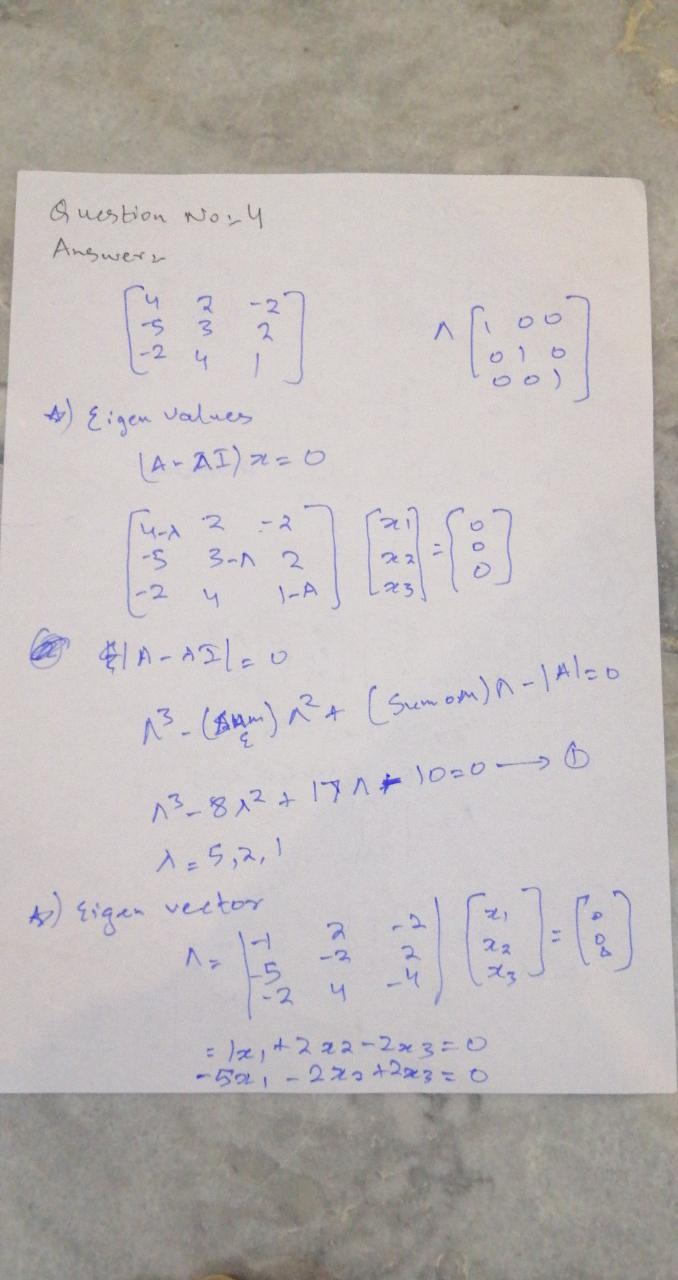 Question No:- 4
Answer:-
[4 2 -2
-5 3 2
-2 4 1]
λ [1 0 0
0 1 0
0 0 1]
A) Eigen values
(A-λI)x=0
[4-λ 2 -2
-5 3-λ 2
-2 4 1-λ] [x1
x2
x3] = [0
0
0]
|A-λI|=0
λ³-( ) λ²+ (Sum om) λ-|A|=0
λ³-8λ²+17λ-10=0 → ①
λ=5,2,1
b) Eigen vector
λ= |-1 2 -2
-5 -2 2
-2 4 -4| [x1
x2
x3] = [0
0
0]
= 1x1+2x2-2x3=0
-5x1-2x2+2x3=0